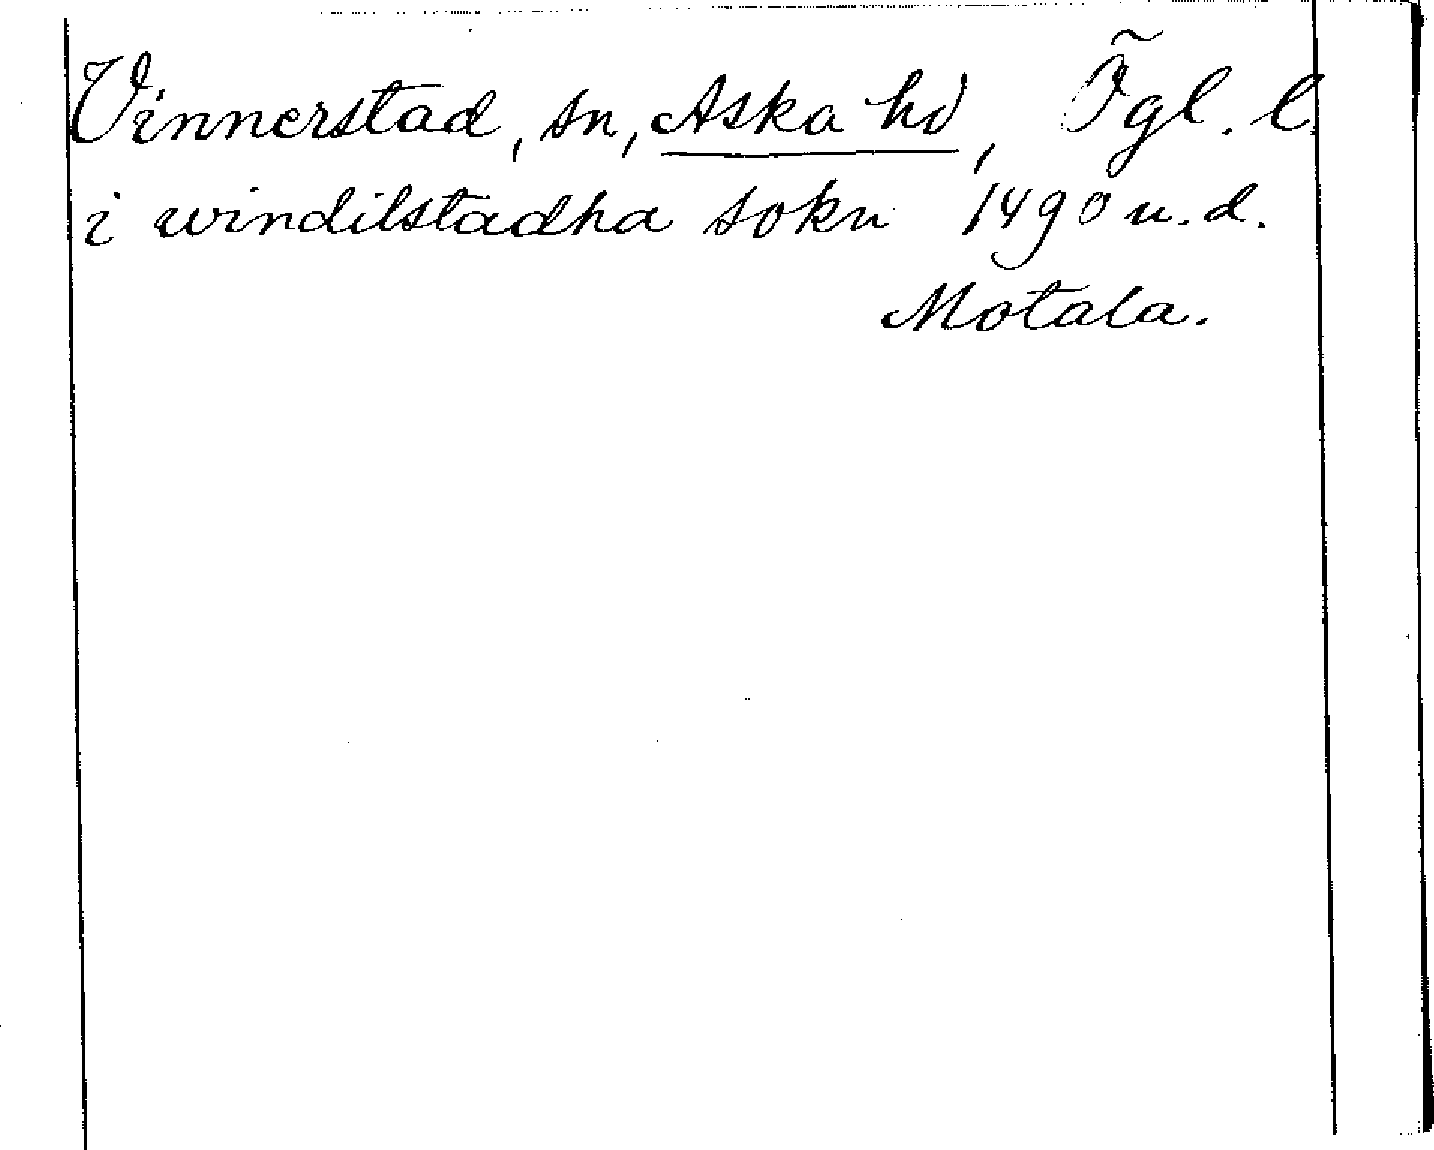 Vinnerstad, sn, Aska hd, Ögl. l
i windilstadha sokn 1490 u. d.
Motala.